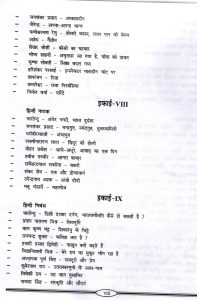 जयशंकर प्रसाद - आकाशदीप
जैनेन्द्र - अपना-अपना भाग्य
फणीश्वरनाथ रेणु - तीसरी कसम, लाल पान की बेगम
अज्ञेय - गैंग्रीन
शेखर जोशी - कोसी का घटवार
भीष्म साहनी - अमृतसर आ गया है, चीफ की दावत
कृष्णा सोबती - सिक्का बदल गया
हरिशंकर परसाई - इन्स्पेक्टर मातादीन चांद पर
ज्ञानरंजन - पिता
कमलेश्वर - राजा निरबंसिया
निर्मल वर्मा - परिंदे
इकाई-VIII
हिन्दी नाटक
भारतेन्दु - अंधेर नगरी, भारत दुर्दशा
जयशंकर प्रसाद - चन्द्रगुप्त, स्कंदगुप्त, ध्रुवस्वामिनी
धर्मवीर भारती - अंधायुग
लक्ष्मीनारायण लाल - सिंदूर की होली
मोहन राकेश - आधे-अधूरे, आषाढ़ का एक दिन
हबीब तनवीर - आगरा बाज़ार
सर्वेश्वरदयाल सक्सेना - बकरी
शंकर शेष - एक और द्रोणाचार्य
उपेन्द्रनाथ अश्क - अंजो दीदी
मन्नू भंडारी - महाभोज
इकाई-IX
हिन्दी निबंध
भारतेन्दु - दिल्ली दरबार दर्पण, भारतवर्षोन्नति कैसे हो सकती है ?
प्रताप नारायण मिश्र - शिवमूर्ति
बाल कृष्ण भट्ट - शिवशंभु के चिट्ठे
रामचन्द्र शुक्ल - कविता क्या है ?
हजारी प्रसाद द्विवेदी - नाखून क्यों बढ़ते हैं
विद्यानिवास मिश्र - मेरे राम का मुकुट भीग रहा है
अध्यापक पूर्ण सिंह - मजदूरी और प्रेम
कुबेरनाथ राय - उत्तराफाल्गुनी के आस-पास
विवेकी राय - उठ जाग मुसाफिर
नामवर सिंह - संस्कृति और सौंदर्य
viii